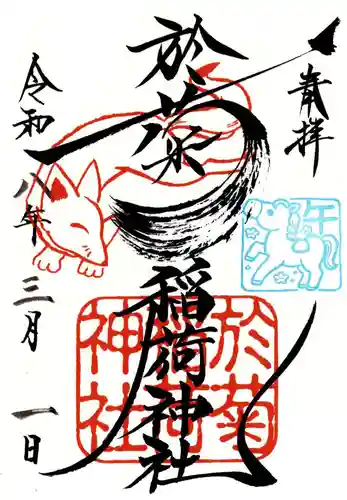 奉拝
於菊
稲荷神社
令和八年
三月
一日
於菊
稲荷
神社
午